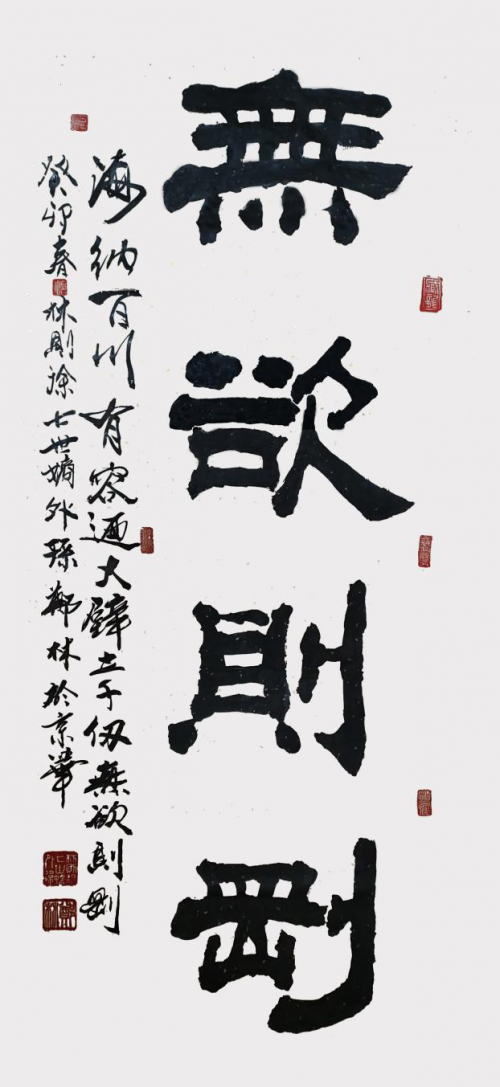 無欲則剛
海納百川有容迺大壁立千仞無欲則剛
癸卯春林則徐七世嫡外孫鄭林於京華